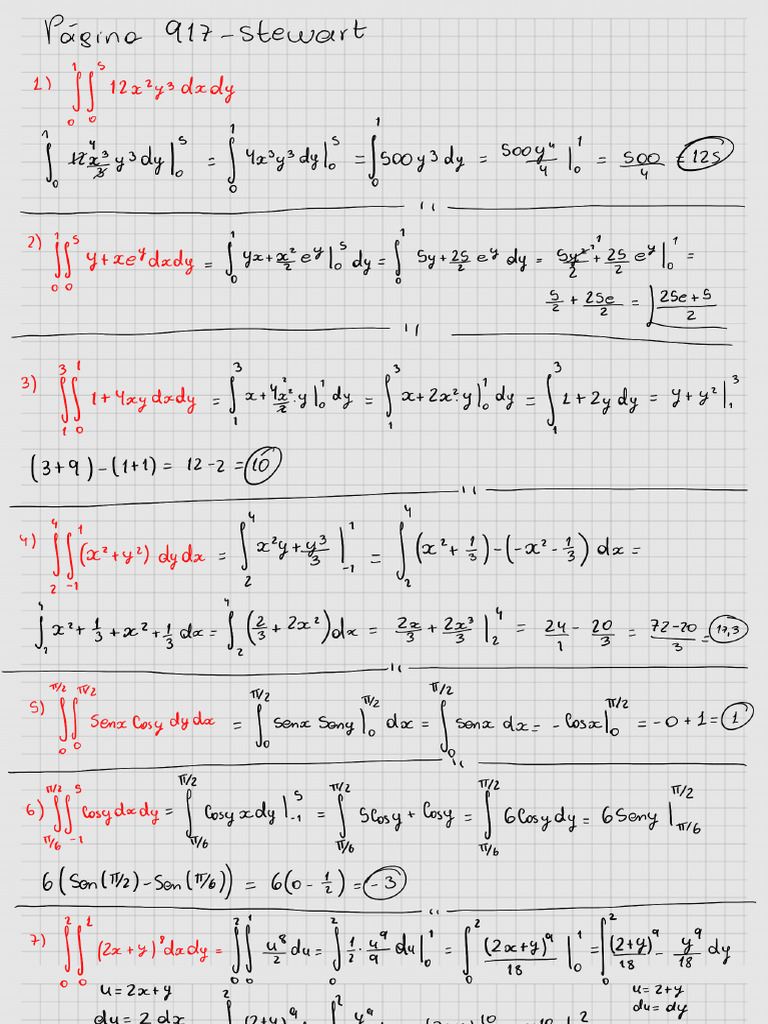 Página 917-Stewart
1) ∫₀¹∫₀⁵ 12x²y³ dx dy
∫₀¹ 12⁴x³/3 y³ dy |₀⁵ = ∫₀¹ 4x³y³ dy |₀⁵ = ∫₀¹ 500y³ dy = 500y⁴/4 |₀¹ = 500/4 = 125
2) ∫₀¹∫₀⁵ y+xeʸ dx dy = ∫₀¹ yx + x²/2 eʸ |₀⁵ dy = ∫₀¹ 5y + 25/2 eʸ dy = 5y²/2 + 25/2 eʸ |₀¹ =
5/2 + 25e/2 = 25e+5/2
3) ∫₁³∫₀¹ 1+4xy dx dy = ∫₁³ x + 4x²/2 · y |₀¹ dy = ∫₁³ x + 2x² · y |₀¹ dy = ∫₁³ 1+2y dy = y+y² |₁³
(3+9)-(1+1) = 12-2 = 10
4) ∫₂⁴∫₋₁¹ (x²+y²) dy dx = ∫₂⁴ x²y + y³/3 |₋₁¹ = ∫₂⁴ (x² + 1/3) - (-x² - 1/3) dx =
∫₂⁴ x² + 1/3 + x² + 1/3 dx = ∫₂⁴ (2/3 + 2x²) dx = 2x/3 + 2x³/3 |₂⁴ = 24/1 - 20/3 = 72-20/3 = 17,3
5) ∫₀^π/2∫₀^π/2 Senx Cosy dy dx = ∫₀^π/2 senx Seny |₀^π/2 dx = ∫₀^π/2 senx dx = -Cosx |₀^π/2 = -0+1 = 1
6) ∫π/6^π/2∫₋₁⁵ Cosy dx dy = ∫π/6^π/2 Cosy x dy |₋₁⁵ = ∫π/6^π/2 5Cosy + Cosy = ∫π/6^π/2 6Cosy dy = 6 Seny |π/6^π/2
6(Sen(π/2)-Sen(π/6)) = 6(0-1/2) = -3
7) ∫₀²∫₀¹ (2x+y)⁸ dx dy = ∫₀²∫₀¹ u⁸/2 du = ∫₀² 1/2 · u⁹/9 du |₀¹ = ∫₀² (2x+y)⁹/18 |₀¹ = ∫₀² (2+y)⁹/18 - y⁹/18 dy
u = 2x+y u = 2+y
du = 2 dx du = dy